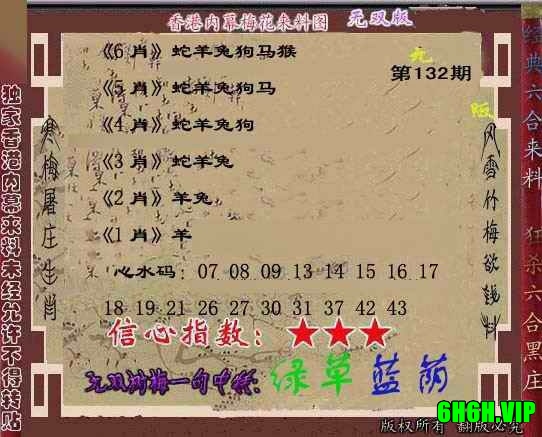 香港内幕梅花来料图 无双版
《6 肖》蛇羊兔狗马猴
无
第132期
《5 肖》蛇羊兔狗马
版
《4 肖》蛇羊兔狗
《3 肖》蛇羊兔
《2 肖》羊兔
《1 肖》羊
心水码： 07 08 09 13 14 15 16 17
18 19 21 26 27 30 31 37 42 43
信心指数：★★★
无双浏梅一句中特：绿草蓝荫
版权所有 翻版必究
6H6H.VIP
独家香港内幕来料未经允许不得转贴
寒梅屠庄生肖
风雪竹梅欲钱料
经典六合来料 狂杀六合黑庄